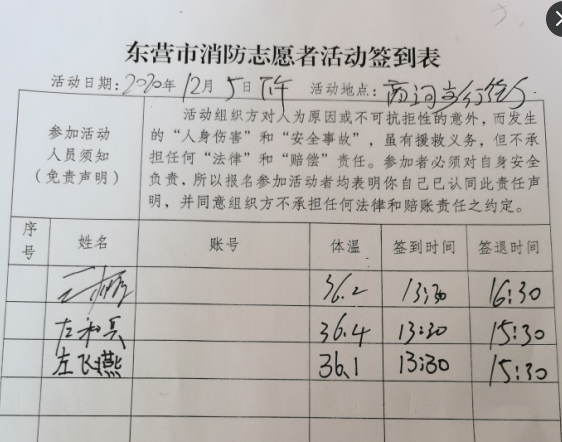 东营市消防志愿者活动签到表
活动日期:2020年12月5日下午 活动地点:
参加活动
人员须知
(免责声明)
活动组织方对人为原因或不可抗拒性的意外,而发生
的“人身伤害”和“安全事故”,虽有援救义务,但不承
担任何“法律”和“赔偿”责任。参加者必须对自身安全
负责,所以报名参加活动者均表明你自己已认同此责任声
明,并同意组织方不承担任何法律和赔账责任之约定。
序号 姓名 账号 体温 签到时间 签退时间
36.2 13:30 16:30
左和兵 36.4 13:30 15:30
左飞燕 36.1 13:30 15:30